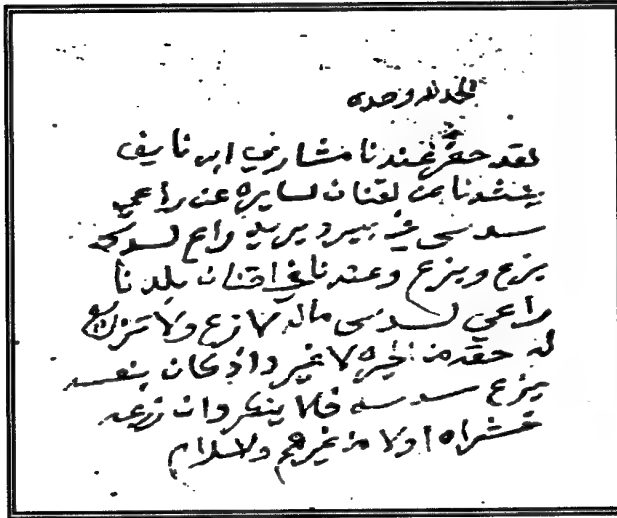 الحمد لله وحده
لقد حضر عندنا مشاري ابن نايف
ينشدنا عن لقنات لسايره عن راعي
سدسى في بير ديريد راع لسدكه
يزع وينزع وعندنا في اقنات بلدنا
راعي لسدسى ماله لا زع ولا
له حقه من لا غير واذ كان بنفسه
يزع سدسه فلا ينكروات زرعه
اولا من غيرهم ولسلام